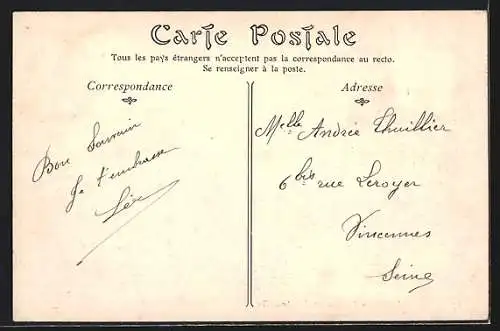 Carte Postale
Tous les pays étrangers n'acceptent pas la correspondance au recto.
Se renseigner à la poste.
Correspondance
Bon Souvenir
Je t'embrasse
Adresse
Melle Andrée Thuillier
6 bis rue Leroyer
Vincennes
Seine